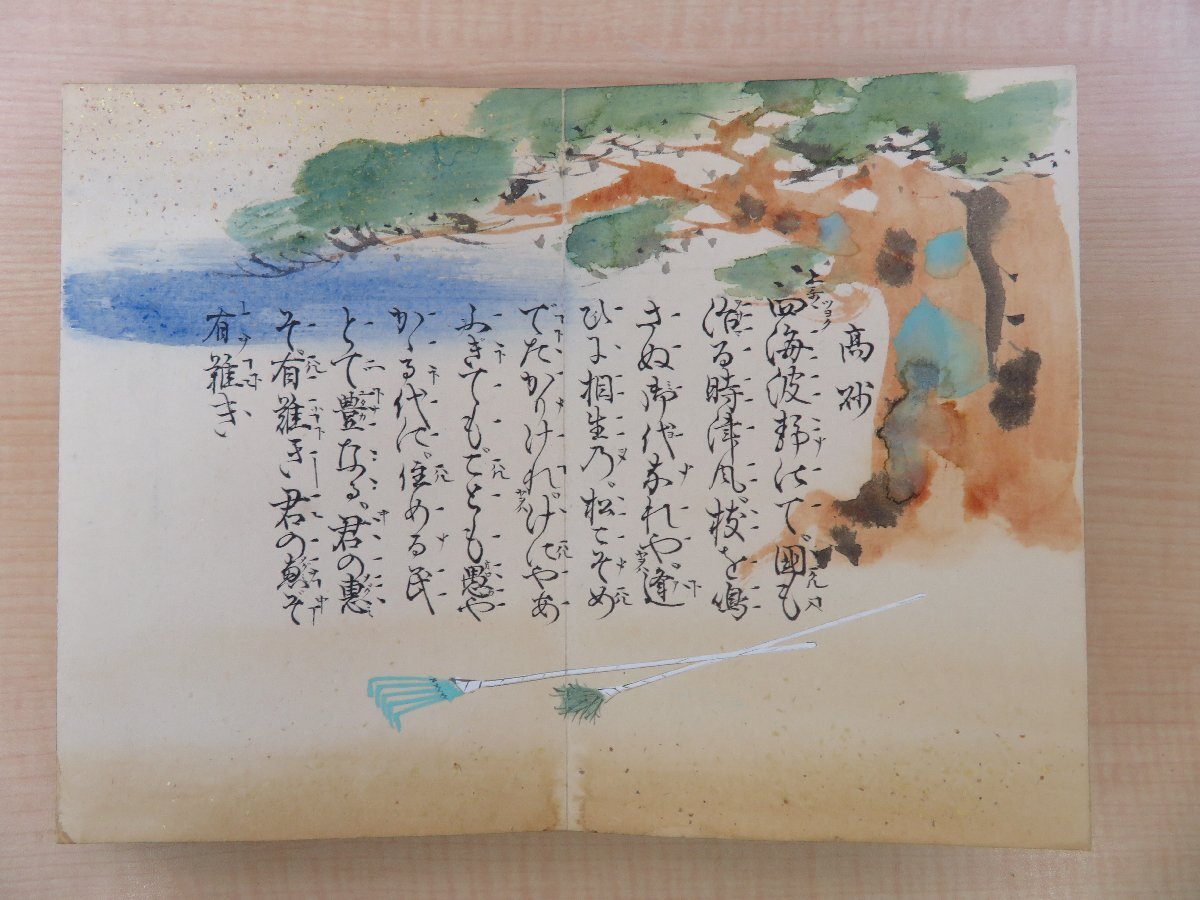 高砂
上哥 ツヨク
四海波静にて。國も
治る時津風。枝を鳴
さぬ御代なれや。逢
ひに相生の。松こそめ
でたかりけれ。げにやあ
ふぎても。ことも愚や
かゝる代に。住める民
とて豊なる。君の惠
ぞ。有難き君の惠ぞ
有難き